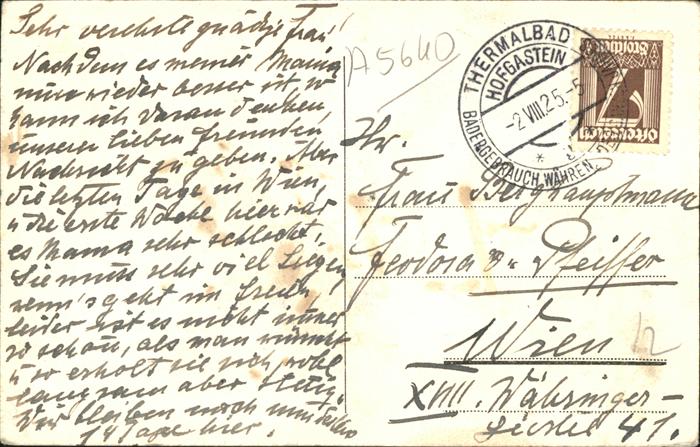 Sehr verehrte gnädige Frau!
Nachdem es meiner Mama
nun wieder besser ist, so
kann ich daran denken,
unseren lieben Freunden
Nachricht zu geben. Aber
die letzten Tage in Wien,
u die erste Woche hier war
es Mama sehr schlecht,
Sie muss sehr viel liegen
wenn's geht im Freien
leider ist es nicht immer
so schön, als man wünscht
u so erholt sie sich wohl
langsam aber stetig.
Wir bleiben noch
14 Tage hier.
A5640
THERMALBAD
HOFGASTEIN
-2.VIII.25.-5
BADERGEBRAUCH WÄHREND
*
2
Groschen
Österreich
Ihr.
Frau Berghauptmann
Feodora v. Pfeiffer
Wien
XVIII. Währinger-
gürtel 41.